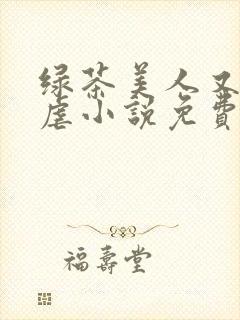 绿茶美人又
虐小説免費
福壽堂